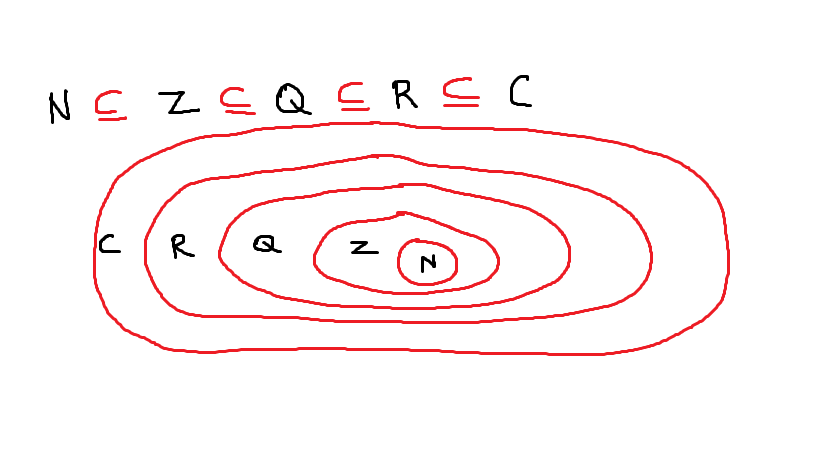 N ⊆ Z ⊆ Q ⊆ R ⊆ C
C R Q Z N